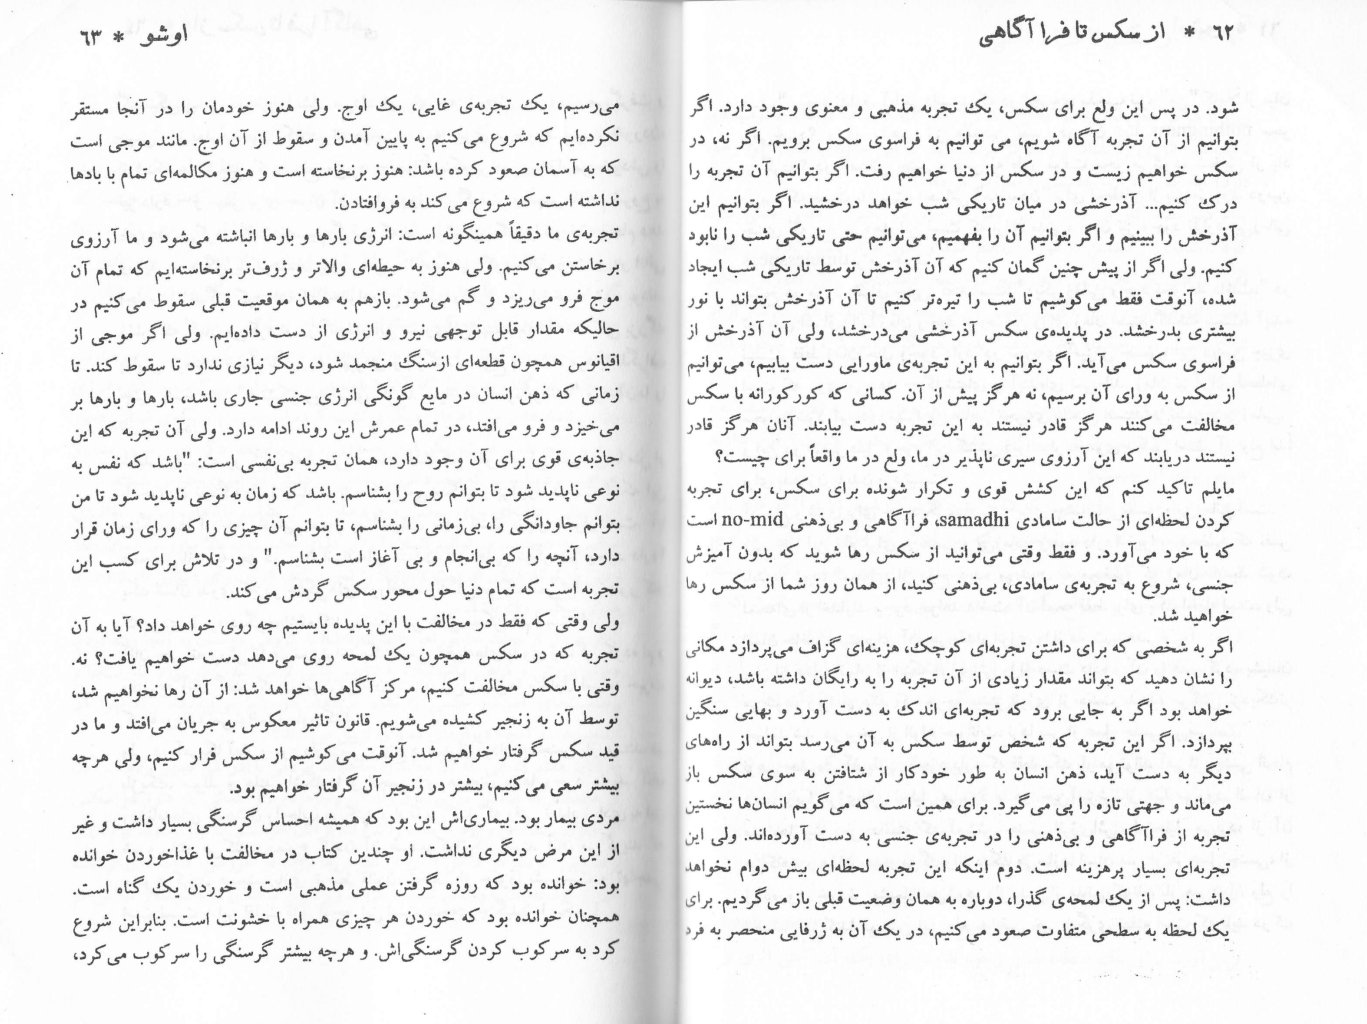 ۶۲ * از سکس تا فرا آگاهی
شود. در پس این ولع برای سکس، یک تجربه مذهبی و معنوی وجود دارد. اگر
بتوانیم از آن تجربه آگاه شویم، می توانیم به فراسوی سکس برویم. اگر نه، در
سکس خواهیم زیست و در سکس از دنیا خواهیم رفت. اگر بتوانیم آن تجربه را
درک کنیم... آذرخشی در میان تاریکی شب خواهد درخشید. اگر بتوانیم این
آذرخش را ببینیم و اگر بتوانیم آن را بفهمیم، می‌توانیم حتی تاریکی شب را نابود
کنیم. ولی اگر از پیش چنین گمان کنیم که آن آذرخش توسط تاریکی شب ایجاد
شده، آنوقت فقط می‌کوشیم تا شب را تیره‌تر کنیم تا آن آذرخش بتواند با نور
بیشتری بدرخشد. در پدیده‌ی سکس آذرخشی می‌درخشد، ولی آن آذرخش از
فراسوی سکس می‌آید. اگر بتوانیم به این تجربه‌ی ماورایی دست بیابیم، می‌توانیم
از سکس به ورای آن برسیم، نه هرگز پیش از آن. کسانی که کورکورانه با سکس
مخالفت می‌کنند هرگز قادر نیستند به این تجربه دست بیابند. آنان هرگز قادر
نیستند دریابند که این آرزوی سیری ناپذیر در ما، ولع در ما واقعاً برای چیست؟
مایلم تاکید کنم که این کشش قوی و تکرار شونده برای سکس، برای تجربه
کردن لحظه‌ای از حالت سامادی samadhi، فراآگاهی و بی‌ذهنی no-mid است
که با خود می‌آورد. و فقط وقتی می‌توانید از سکس رها شوید که بدون آمیزش
جنسی، شروع به تجربه‌ی سامادی، بی‌ذهنی کنید، از همان روز شما از سکس رها
خواهید شد.
اگر به شخصی که برای داشتن تجربه‌ای کوچک، هزینه‌ای گزاف می‌پردازد مکانی
را نشان دهید که بتواند مقدار زیادی از آن تجربه را به رایگان داشته باشد، دیوانه
خواهد بود اگر به جایی برود که تجربه‌ای اندک به دست آورد و بهایی سنگین
بپردازد. اگر این تجربه که شخص توسط سکس به آن می‌رسد بتواند از راه‌های
دیگر به دست آید، ذهن انسان به طور خودکار از شتافتن به سوی سکس باز
می‌ماند و جهتی تازه را پی می‌گیرد. برای همین است که می‌گویم انسان‌ها نخستین
تجربه از فراآگاهی و بی‌ذهنی را در تجربه‌ی جنسی به دست آورده‌اند. ولی این
تجربه‌ای بسیار پرهزینه است. دوم اینکه این تجربه لحظه‌ای بیش دوام نخواهد
داشت: پس از یک لمحه‌ی گذرا، دوباره به همان وضعیت قبلی باز می‌گردیم. برای
یک لحظه به سطحی متفاوت صعود می‌کنیم، در یک آن به ژرفایی منحصر به فرد
اوشو * ۶۳
می‌رسیم، یک تجربه‌ی غایی، یک اوج. ولی هنوز خودمان را در آنجا مستقر
نکرده‌ایم که شروع می‌کنیم به پایین آمدن و سقوط از آن اوج. مانند موجی است
که به آسمان صعود کرده باشد: هنوز برنخاسته است و هنوز مکالمه‌ای تمام با بادها
نداشته است که شروع می‌کند به فروافتادن.
تجربه‌ی ما دقیقاً همینگونه است: انرژی بارها و بارها انباشته می‌شود و ما آرزوی
برخاستن می‌کنیم. ولی هنوز به حیطه‌ای والاتر و ژرف‌تر برنخاسته‌ایم که تمام آن
موج فرو می‌ریزد و گم می‌شود. بازهم به همان موقعیت قبلی سقوط می‌کنیم در
حالیکه مقدار قابل توجهی نیرو و انرژی از دست داده‌ایم. ولی اگر موجی از
اقیانوس همچون قطعه‌ای ازسنگ منجمد شود، دیگر نیازی ندارد تا سقوط کند. تا
زمانی که ذهن انسان در مایع گونگی انرژی جنسی جاری باشد، بارها و بارها بر
می‌خیزد و فرو می‌افتد، در تمام عمرش این روند ادامه دارد. ولی آن تجربه که این
جاذبه‌ی قوی برای آن وجود دارد، همان تجربه بی‌نفسی است: "باشد که نفس به
نوعی ناپدید شود تا بتوانم روح را بشناسم. باشد که زمان به نوعی ناپدید شود تا من
بتوانم جاودانگی را، بی‌زمانی را بشناسم، تا بتوانم آن چیزی را که ورای زمان قرار
دارد، آنچه را که بی‌انجام و بی آغاز است بشناسم." و در تلاش برای کسب این
تجربه است که تمام دنیا حول محور سکس گردش می‌کند.
ولی وقتی که فقط در مخالفت با این پدیده بایستیم چه روی خواهد داد؟ آیا به آن
تجربه که در سکس همچون یک لمحه روی می‌دهد دست خواهیم یافت؟ نه.
وقتی با سکس مخالفت کنیم، مرکز آگاهی‌ها خواهد شد: از آن رها نخواهیم شد،
توسط آن به زنجیر کشیده می‌شویم. قانون تاثیر معکوس به جریان می‌افتد و ما در
قید سکس گرفتار خواهیم شد. آنوقت می‌کوشیم از سکس فرار کنیم، ولی هرچه
بیشتر سعی می‌کنیم، بیشتر در زنجیر آن گرفتار خواهیم بود.
مردی بیمار بود. بیماری‌اش این بود که همیشه احساس گرسنگی بسیار داشت و غیر
از این مرض دیگری نداشت. او چندین کتاب در مخالفت با غذاخوردن خوانده
بود: خوانده بود که روزه گرفتن عملی مذهبی است و خوردن یک گناه است.
همچنان خوانده بود که خوردن هر چیزی همراه با خشونت است. بنابراین شروع
کرد به سرکوب کردن گرسنگی‌اش. و هرچه بیشتر گرسنگی را سرکوب می‌کرد،